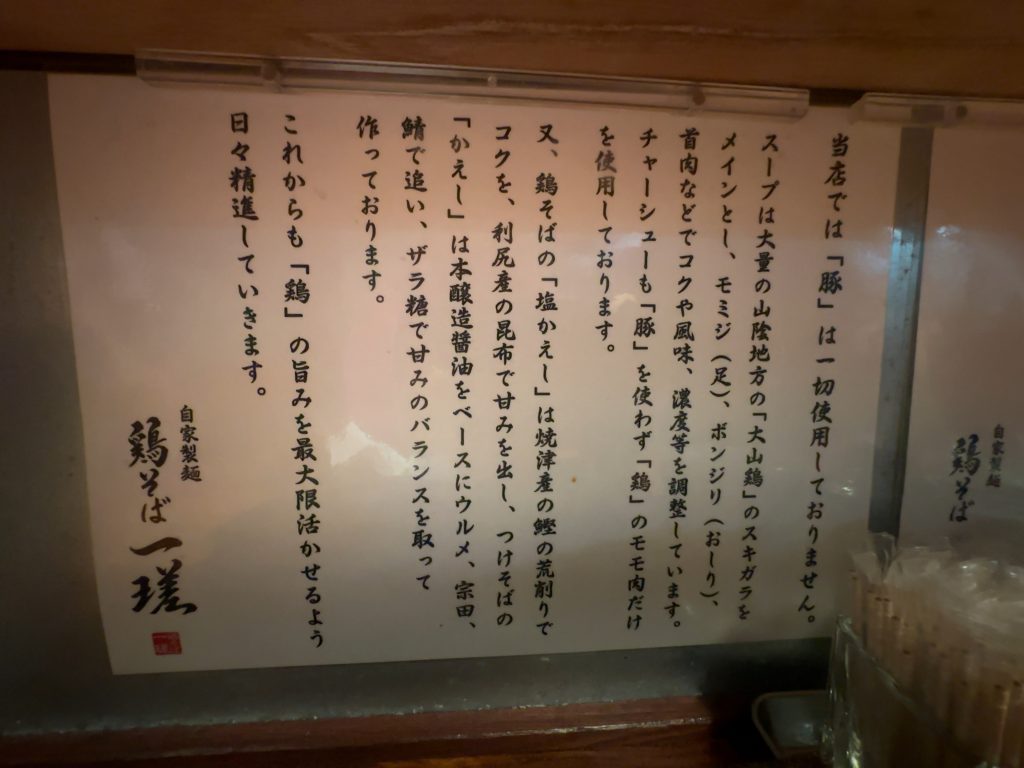 当店では「豚」は一切使用しておりません。
スープは大量の山陰地方の「大山鶏」のスキガラを
メインとし、モミジ（足）、ボンジリ（おしり）、
首肉などでコクや風味、濃度等を調整しています。
チャーシューも「豚」を使わず「鶏」のモモ肉だけ
を使用しております。
又、鶏そばの「塩かえし」は焼津産の鰹の荒削りで
コクを、利尻産の昆布で甘みを出し、つけそばの
「かえし」は本醸造醤油をベースにウルメ、宗田、
鯖で追い、ザラ糖で甘みのバランスを取って
作っております。
これからも「鶏」の旨みを最大限活かせるよう
日々精進していきます。
自家製麺
鶏そば一瑳
自家製麺
鶏そば